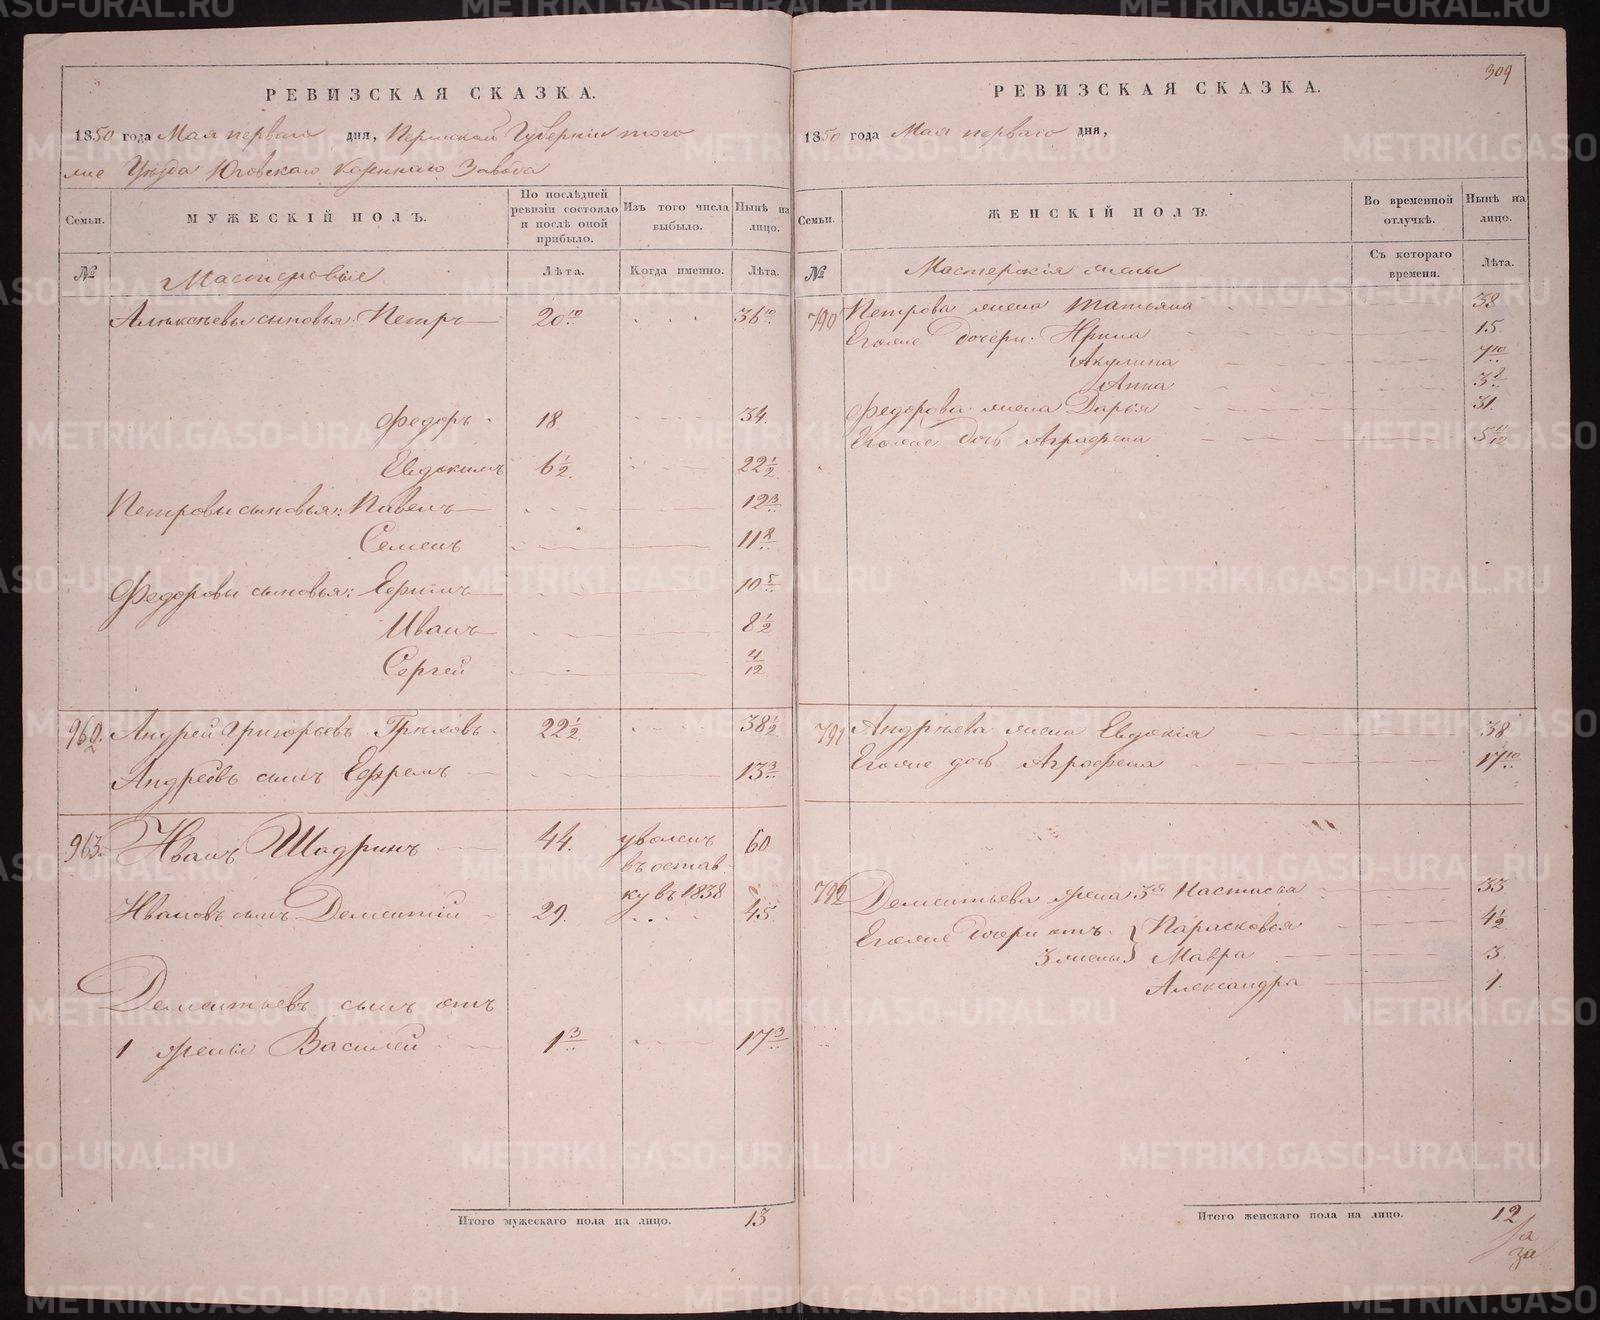 309
РЕВИЗСКАЯ СКАЗКА.
1850 года Мая перваго дня, Пермской Губернiи того
же Уѣзда Юговскаго Казеннаго Завода
Семьи.
МУЖЕСКIЙ ПОЛЪ.
По послѣдней ревизiи состояло и послѣ оной прибыло.
Изъ того числа выбыло.
Нынѣ на лицо.
№
Мастеровые
Лѣта.
Когда именно.
Лѣта.
Алексѣевы сыновья: Петръ 20 10 36 10
Федоръ 18. 34.
Евдокимъ 6 1/2 22 1/2
Петровы сыновья: Павелъ 12 3
Семенъ 11 8
Федоровы сыновья: 10 5
Иванъ 8 1/2
Сергей 4/12
962. Андрей Григорьевъ Грѣховъ 22 1/2 38 1/2
Андреевъ сынъ Ефремъ 13 3
963. Иванъ Шадринъ 44. уволенъ 60
въ остав-
ку въ 1838
Ивановъ сынъ Дементiй 29. 45.
Дементьевъ сынъ отъ
1 жены Василей 1 3 17 3
Итого мужескаго пола на лицо. 13
РЕВИЗСКАЯ СКАЗКА.
1850 года Мая перваго дня,
Семьи.
ЖЕНСКIЙ ПОЛЪ.
Во временной отлучкѣ.
Нынѣ на лицо.
№
Мастерскiя жены
Съ котораго времени.
Лѣта.
790 Петрова жена Татьяна 38
Егоже дочери: Ирина 15
Акулина 7 10
Анна 3 2
Федорова жена Дарья 31
Егоже дочь Аграфена 5 11/12
791 Андрѣева жена Евдокiя 38
Егоже дочь Аграфена 17 10
792 Дементьева жена 3я Настасья 33
Егоже дочери отъ Парасковья 4 1/2
3 жены Мавра 3
Александра 1.
Итого женскаго пола на лицо. 12
METRIKI.GASO-URAL.RU